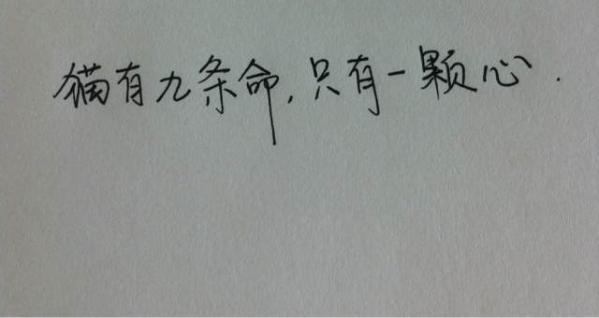 猫有九条命,只有一颗心.